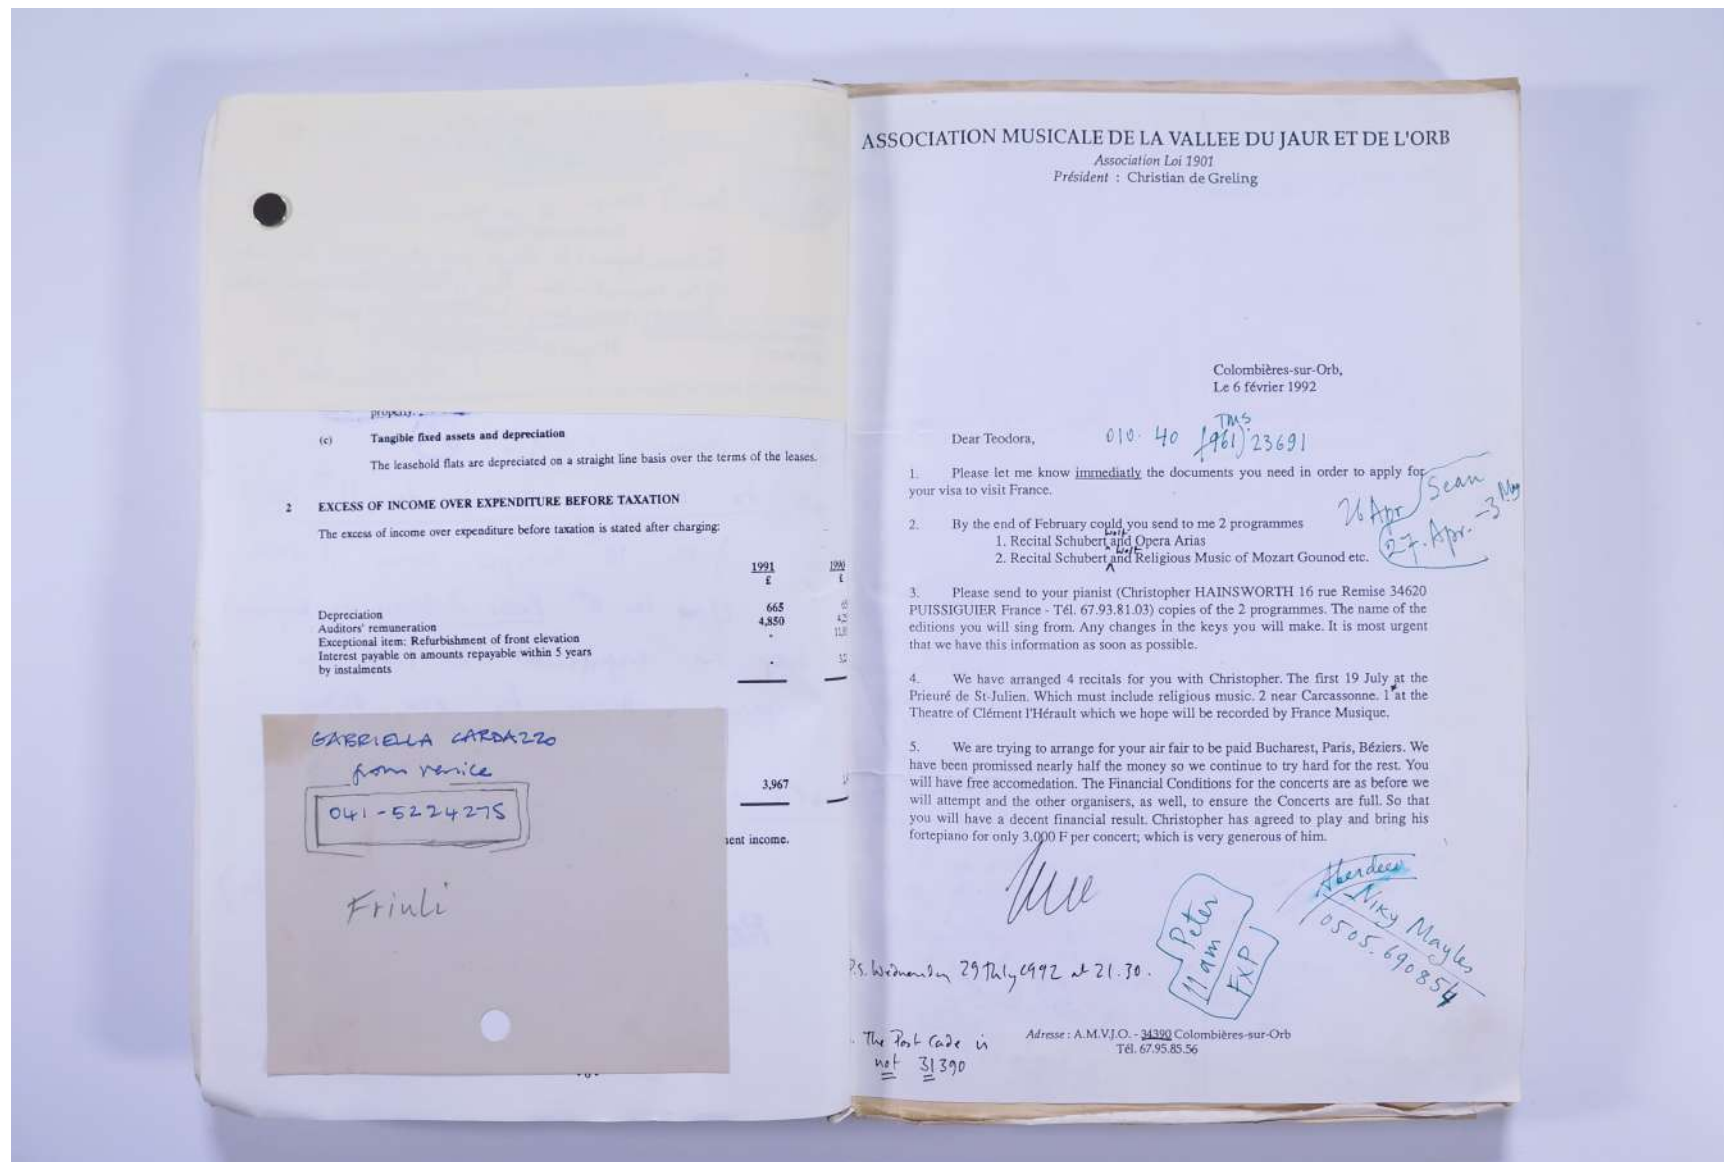 (c) Tangible fixed assets and depreciation
The leasehold flats are depreciated on a straight line basis over the terms of the leases.
2 EXCESS OF INCOME OVER EXPENDITURE BEFORE TAXATION
The excess of income over expenditure before taxation is stated after charging:
1991 1990
£ £
Depreciation 665
Auditors' remuneration 4,850
Exceptional item: Refurbishment of front elevation -
Interest payable on amounts repayable within 5 years
by instalments -
3,967
income.
GABRIELLA CARDAZZO
from Venice
041-5224275
Friuli
ASSOCIATION MUSICALE DE LA VALLEE DU JAUR ET DE L'ORB
Association Loi 1901
Président : Christian de Greling
Colombières-sur-Orb,
Le 6 février 1992
TMS
Dear Teodora, 010. 40 (961) 23691
1. Please let me know immediatly the documents you need in order to apply for
your visa to visit France.
Sean
26 Apr
27. Apr. - 3 May
2. By the end of February could you send to me 2 programmes
1. Recital Schubert Wolf and Opera Arias
2. Recital Schubert Wolf and Religious Music of Mozart Gounod etc.
3. Please send to your pianist (Christopher HAINSWORTH 16 rue Remise 34620
PUISSIGUIER France - Tél. 67.93.81.03) copies of the 2 programmes. The name of the
editions you will sing from. Any changes in the keys you will make. It is most urgent
that we have this information as soon as possible.
4. We have arranged 4 recitals for you with Christopher. The first 19 July at the
Prieuré de St-Julien. Which must include religious music. 2 near Carcassonne. 1* at the
Theatre of Clément l'Hérault which we hope will be recorded by France Musique.
5. We are trying to arrange for your air fair to be paid Bucharest, Paris, Béziers. We
have been promissed nearly half the money so we continue to try hard for the rest. You
will have free accomedation. The Financial Conditions for the concerts are as before we
will attempt and the other organisers, as well, to ensure the Concerts are full. So that
you will have a decent financial result. Christopher has agreed to play and bring his
fortepiano for only 3.000 F per concert; which is very generous of him.
Aberdeen
Niky Mayles
0505.690854
Peter
11 am
FXP
P.S. Wednesday 29 July 1992 at 21.30.
Adresse : A.M.V.J.O. - 34390 Colombières-sur-Orb
Tél. 67.95.85.56
The Post Code is
not 31390